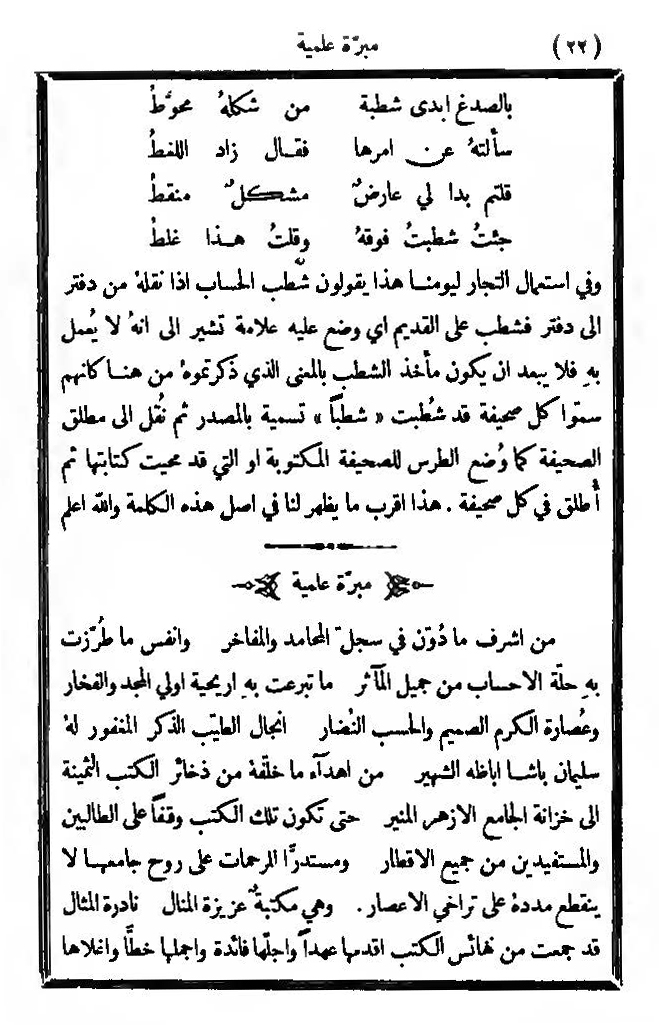 (٢٢) مبرّة علمية
بالصدغ ابدى شطبة من شكلهُ محوَّطُ
سألتهُ عن امرها فقال زاد اللغطُ
قلتم بدا لي عارضٌ مشكلٌ منقطُ
جئتُ شطبتُ فوقهُ وقلتُ هذا غلطُ
وفي استعمال التجار ليومنا هذا يقولون شطّب الحساب اذا نقلهُ من دفتر
الى دفتر فشطب على القديم اي وضع عليه علامة تشير الى انهُ لا يُعمل
بهِ فلا يبعد ان يكون مأخذ الشطب بالمعنى الذي ذكرتموهُ من هنا كانهم
سمّوا كل صحيفة قد شُطبت « شطبًا » تسمية بالمصدر ثم نُقل الى مطلق
الصحيفة كما وُضع الطرس للصحيفة المكتوبة او التي قد محيت كتابتها ثم
أُطلق في كل صحيفة . هذا اقرب ما يظهر لنا في اصل هذه الكلمة والله اعلم
مبرّة علمية
من اشرف ما دُوّن في سجلّ المحامد والمفاخر وانفس ما طُرّزت
بهِ حلّة الاحساب من جميل المآثر ما تبرعت بهِ اريحية اولي المجد والفخار
وعُصارة الكرم الصميم والحسب النُضار انجال الطيّب الذكر المغفور لهُ
سليمان باشا اباظه الشهير من اهدآء ما خلّفهُ من ذخائر الكتب الثمينة
الى خزانة الجامع الازهر المنير حتى تكون تلك الكتب وقفًا على الطالبين
والمستفيدين من جميع الاقطار ومستدرًّا للرحمات على روح جامعها لا
ينقطع مددهُ على تراخي الاعصار . وهي مكتبةٌ عزيزة المنال نادرة المثال
قد جمعت من نفائس الكتب اقدمها عهدًا واجلّها فائدة واجملها خطًّا واغلاها